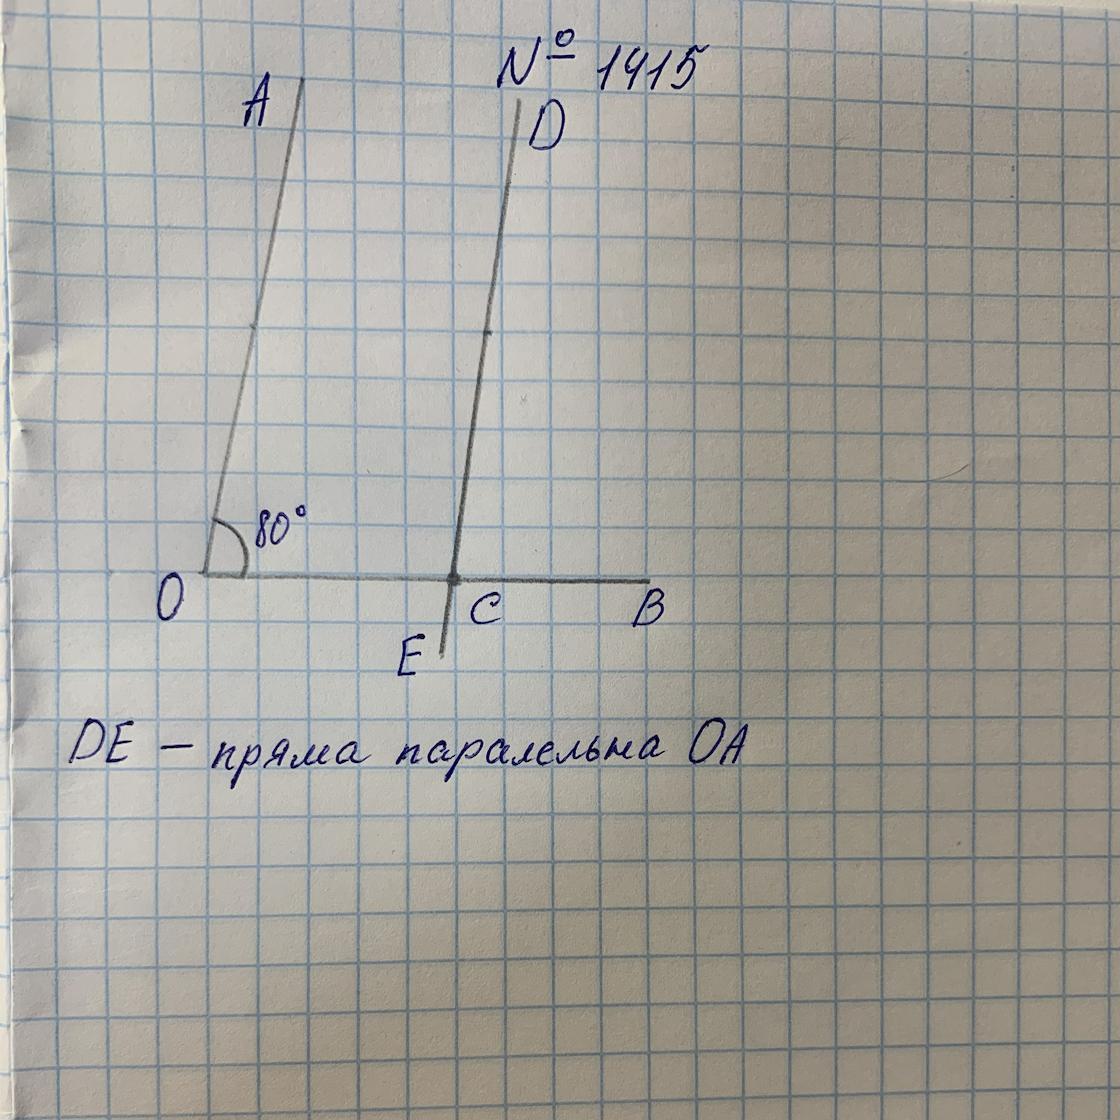 № 1415
A
D
80°
O
C
B
E
DE – пряма паралельна OA